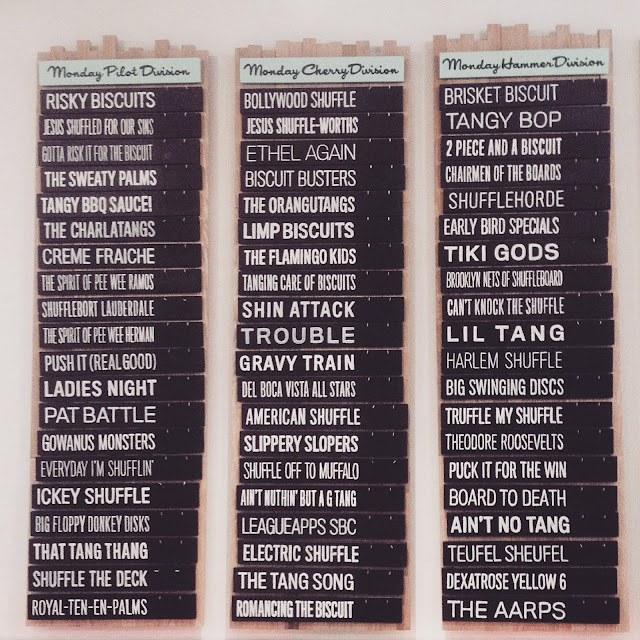 Monday Pilot Division
RISKY BISCUITS
JESUS SHUFFLED FOR OUR SINS
GOTTA RISK IT FOR THE BISCUIT
THE SWEATY PALMS
TANGY BBQ SAUCE!
THE CHARLATANGS
CREME FRAICHE
THE SPIRIT OF PEE WEE RAMOS
SHUFFLEBORT LAUDERDALE
THE SPIRIT OF PEE WEE HERMAN
PUSH IT (REAL GOOD)
LADIES NIGHT
PAT BATTLE
GOWANUS MONSTERS
EVERYDAY I'M SHUFFLIN'
ICKEY SHUFFLE
BIG FLOPPY DONKEY DISKS
THAT TANG THANG
SHUFFLE THE DECK
ROYAL-TEN-EN-PALMS
Monday Cherry Division
BOLLYWOOD SHUFFLE
JESUS SHUFFLE-WORTHS
ETHEL AGAIN
BISCUIT BUSTERS
THE ORANGUTANGS
LIMP BISCUITS
THE FLAMINGO KIDS
TANGING CARE OF BISCUITS
SHIN ATTACK
TROUBLE
GRAVY TRAIN
DEL BOCA VISTA ALL STARS
AMERICAN SHUFFLE
SLIPPERY SLOPERS
SHUFFLE OFF TO MUFFALO
AIN'T NUTHIN' BUT A G TANG
LEAGUEAPPS SBC
ELECTRIC SHUFFLE
THE TANG SONG
ROMANCING THE BISCUIT
Monday Hammer Division
BRISKET BISCUIT
TANGY BOP
2 PIECE AND A BISCUIT
CHAIRMEN OF THE BOARDS
SHUFFLEHORDE
EARLY BIRD SPECIALS
TIKI GODS
BROOKLYN NETS OF SHUFFLEBOARD
CAN'T KNOCK THE SHUFFLE
LIL TANG
HARLEM SHUFFLE
BIG SWINGING DISCS
TRUFFLE MY SHUFFLE
THEODORE ROOSEVELTS
PUCK IT FOR THE WIN
BOARD TO DEATH
AIN'T NO TANG
TEUFEL SHEUFEL
DEXATROSE YELLOW 6
THE AARPS